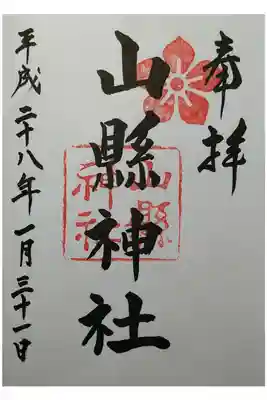 奉拝
山縣神社
山縣
神社
平成二十八年一月三十一日